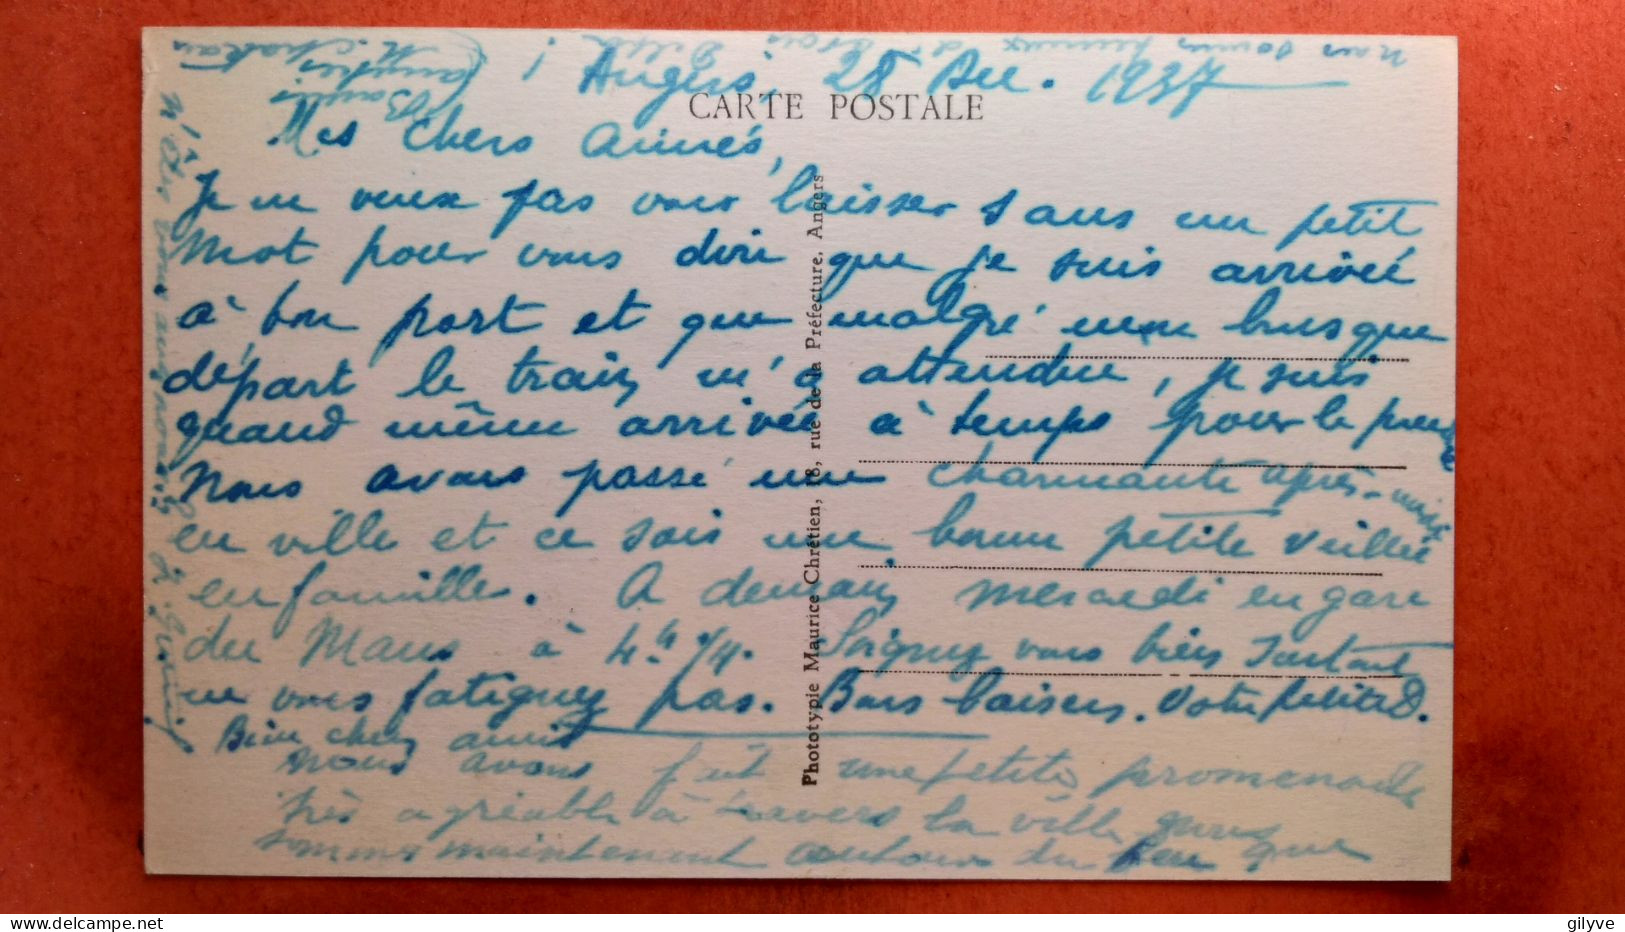 Angers, 28 Dec. 1937
CARTE POSTALE
Mes Chers Aimés,
Je ne veux pas vous laisser sans un petit
mot pour vous dire que je suis arrivée
à bon port et que malgré mon brusque
départ le train m'a attendue, je suis
quand même arrivée à temps pour le prendre
Nous avons passé une charmante après-midi
en ville et ce soir une bonne petite veillée
en famille. A demain mercredi en gare
du Mans à 4h 1/4. Soignez vous bien surtout
ne vous fatiguez pas. Bons baisers. Votre petite
Bien chers amis
Nous avons fait une petite promenade
très agréable à travers la ville nous
sommes maintenant autour du feu que
Phototypie Maurice Chrétien, 18, rue de la Préfecture, Angers
gilyve